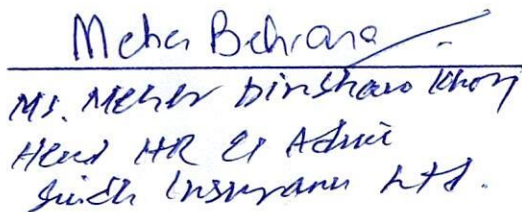 Meher Behrana
Ms. Meher Dinshaw Khory
Head HR & Admin
Sindh Insurance Ltd.